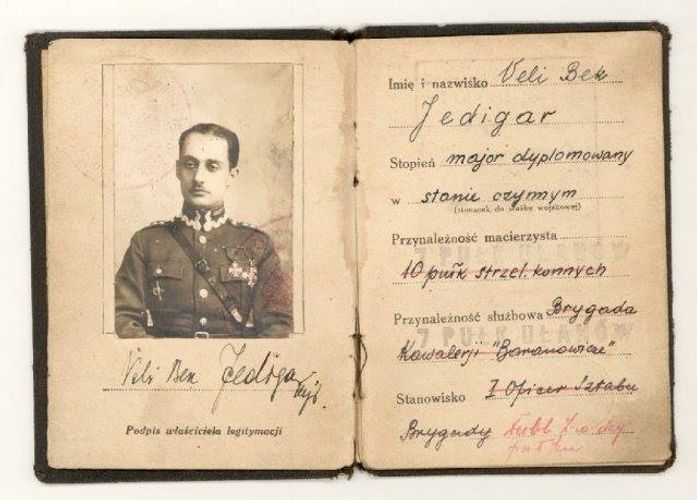 Veli Bek Jedigar mjr.
Podpis właściciela legitymacji
Imię i nazwisko Veli Bek
Jedigar
Stopień major dyplomowany
w stanie czynnym
(stosunek do służby wojskowej)
Przynależność macierzysta
10 pułk strzel. konnych
Przynależność służbowa Brygada
7 PUŁK UŁANÓW
Kawalerji "Baranowicze"
Stanowisko I Oficer Sztabu
Brygady